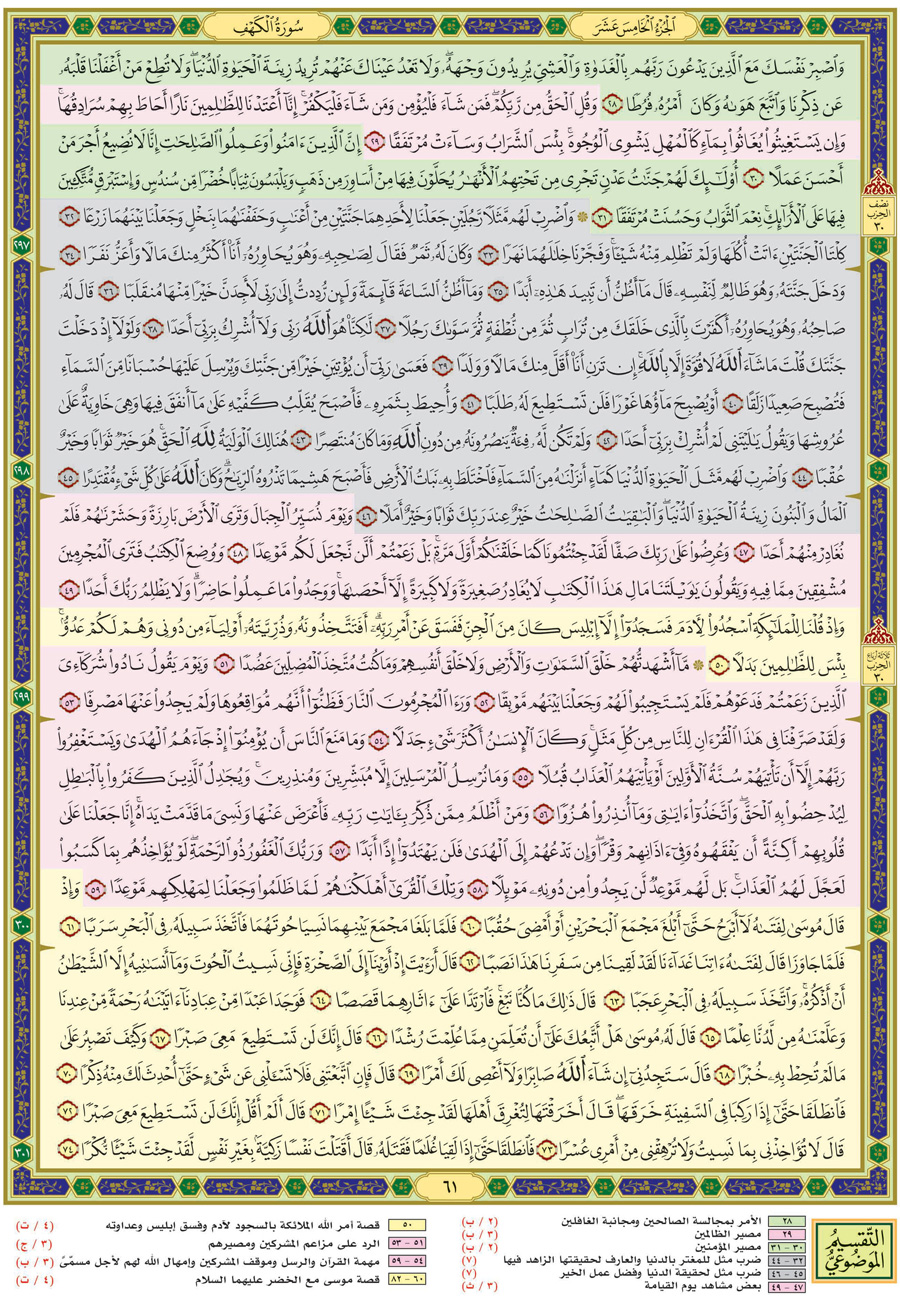 الجزء الخامس عشر
سورة الكهف
وَٱصْبِرْ نَفْسَكَ مَعَ ٱلَّذِينَ يَدْعُونَ رَبَّهُم بِٱلْغَدَوٰةِ وَٱلْعَشِىِّ يُرِيدُونَ وَجْهَهُۥ وَلَا تَعْدُ عَيْنَاكَ عَنْهُمْ تُرِيدُ زِينَةَ ٱلْحَيَوٰةِ ٱلدُّنْيَا وَلَا تُطِعْ مَنْ أَغْفَلْنَا قَلْبَهُۥ
عَن ذِكْرِنَا وَٱتَّبَعَ هَوَىٰهُ وَكَانَ أَمْرُهُۥ فُرُطًا ٢٨ وَقُلِ ٱلْحَقُّ مِن رَّبِّكُمْ فَمَن شَآءَ فَلْيُؤْمِن وَمَن شَآءَ فَلْيَكْفُرْ إِنَّآ أَعْتَدْنَا لِلظَّٰلِمِينَ نَارًا أَحَاطَ بِهِمْ سُرَادِقُهَا
وَإِن يَسْتَغِيثُوا۟ يُغَاثُوا۟ بِمَآءٍ كَٱلْمُهْلِ يَشْوِى ٱلْوُجُوهَ بِئْسَ ٱلشَّرَابُ وَسَآءَتْ مُرْتَفَقًا ٢٩ إِنَّ ٱلَّذِينَ ءَامَنُوا۟ وَعَمِلُوا۟ ٱلصَّٰلِحَٰتِ إِنَّا لَا نُضِيعُ أَجْرَ مَنْ
أَحْسَنَ عَمَلًا ٣٠ أُو۟لَٰٓئِكَ لَهُمْ جَنَّٰتُ عَدْنٍ تَجْرِى مِن تَحْتِهِمُ ٱلْأَنْهَٰرُ يُحَلَّوْنَ فِيهَا مِنْ أَسَاوِرَ مِن ذَهَبٍ وَيَلْبَسُونَ ثِيَابًا خُضْرًا مِّن سُندُسٍ وَإِسْتَبْرَقٍ مُّتَّكِـِٔينَ
فِيهَا عَلَى ٱلْأَرَآئِكِ نِعْمَ ٱلثَّوَابُ وَحَسُنَتْ مُرْتَفَقًا ٣١ ۞ وَٱضْرِبْ لَهُم مَّثَلًا رَّجُلَيْنِ جَعَلْنَا لِأَحَدِهِمَا جَنَّتَيْنِ مِنْ أَعْنَٰبٍ وَحَفَفْنَٰهُمَا بِنَخْلٍ وَجَعَلْنَا بَيْنَهُمَا زَرْعًا ٣٢
كِلْتَا ٱلْجَنَّتَيْنِ ءَاتَتْ أُكُلَهَا وَلَمْ تَظْلِم مِّنْهُ شَيْـًٔا وَفَجَّرْنَا خِلَٰلَهُمَا نَهَرًا ٣٣ وَكَانَ لَهُۥ ثَمَرٌ فَقَالَ لِصَٰحِبِهِۦ وَهُوَ يُحَاوِرُهُۥٓ أَنَا۠ أَكْثَرُ مِنكَ مَالًا وَأَعَزُّ نَفَرًا ٣٤
وَدَخَلَ جَنَّتَهُۥ وَهُوَ ظَالِمٌ لِّنَفْسِهِۦ قَالَ مَآ أَظُنُّ أَن تَبِيدَ هَٰذِهِۦٓ أَبَدًا ٣٥ وَمَآ أَظُنُّ ٱلسَّاعَةَ قَآئِمَةً وَلَئِن رُّدِدتُّ إِلَىٰ رَبِّى لَأَجِدَنَّ خَيْرًا مِّنْهَا مُنقَلَبًا ٣٦ قَالَ لَهُۥ
صَاحِبُهُۥ وَهُوَ يُحَاوِرُهُۥٓ أَكَفَرْتَ بِٱلَّذِى خَلَقَكَ مِن تُرَابٍ ثُمَّ مِن نُّطْفَةٍ ثُمَّ سَوَّىٰكَ رَجُلًا ٣٧ لَّٰكِنَّا۠ هُوَ ٱللَّهُ رَبِّى وَلَآ أُشْرِكُ بِرَبِّىٓ أَحَدًا ٣٨ وَلَوْلَآ إِذْ دَخَلْتَ
جَنَّتَكَ قُلْتَ مَا شَآءَ ٱللَّهُ لَا قُوَّةَ إِلَّا بِٱللَّهِ إِن تَرَنِ أَنَا۠ أَقَلَّ مِنكَ مَالًا وَوَلَدًا ٣٩ فَعَسَىٰ رَبِّىٓ أَن يُؤْتِيَنِ خَيْرًا مِّن جَنَّتِكَ وَيُرْسِلَ عَلَيْهَا حُسْبَانًا مِّنَ ٱلسَّمَآءِ
فَتُصْبِحَ صَعِيدًا زَلَقًا ٤٠ أَوْ يُصْبِحَ مَآؤُهَا غَوْرًا فَلَن تَسْتَطِيعَ لَهُۥ طَلَبًا ٤١ وَأُحِيطَ بِثَمَرِهِۦ فَأَصْبَحَ يُقَلِّبُ كَفَّيْهِ عَلَىٰ مَآ أَنفَقَ فِيهَا وَهِىَ خَاوِيَةٌ عَلَىٰ
عُرُوشِهَا وَيَقُولُ يَٰلَيْتَنِى لَمْ أُشْرِكْ بِرَبِّىٓ أَحَدًا ٤٢ وَلَمْ تَكُن لَّهُۥ فِئَةٌ يَنصُرُونَهُۥ مِن دُونِ ٱللَّهِ وَمَا كَانَ مُنتَصِرًا ٤٣ هُنَالِكَ ٱلْوَلَٰيَةُ لِلَّهِ ٱلْحَقِّ هُوَ خَيْرٌ ثَوَابًا وَخَيْرٌ
عُقْبًا ٤٤ وَٱضْرِبْ لَهُم مَّثَلَ ٱلْحَيَوٰةِ ٱلدُّنْيَا كَمَآءٍ أَنزَلْنَٰهُ مِنَ ٱلسَّمَآءِ فَٱخْتَلَطَ بِهِۦ نَبَاتُ ٱلْأَرْضِ فَأَصْبَحَ هَشِيمًا تَذْرُوهُ ٱلرِّيَٰحُ وَكَانَ ٱللَّهُ عَلَىٰ كُلِّ شَىْءٍ مُّقْتَدِرًا ٤٥
ٱلْمَالُ وَٱلْبَنُونَ زِينَةُ ٱلْحَيَوٰةِ ٱلدُّنْيَا وَٱلْبَٰقِيَٰتُ ٱلصَّٰلِحَٰتُ خَيْرٌ عِندَ رَبِّكَ ثَوَابًا وَخَيْرٌ أَمَلًا ٤٦ وَيَوْمَ نُسَيِّرُ ٱلْجِبَالَ وَتَرَى ٱلْأَرْضَ بَارِزَةً وَحَشَرْنَٰهُمْ فَلَمْ
نُغَادِرْ مِنْهُمْ أَحَدًا ٤٧ وَعُرِضُوا۟ عَلَىٰ رَبِّكَ صَفًّا لَّقَدْ جِئْتُمُونَا كَمَا خَلَقْنَٰكُمْ أَوَّلَ مَرَّةٍۭ بَلْ زَعَمْتُمْ أَلَّن نَّجْعَلَ لَكُم مَّوْعِدًا ٤٨ وَوُضِعَ ٱلْكِتَٰبُ فَتَرَى ٱلْمُجْرِمِينَ
مُشْفِقِينَ مِمَّا فِيهِ وَيَقُولُونَ يَٰوَيْلَتَنَا مَالِ هَٰذَا ٱلْكِتَٰبِ لَا يُغَادِرُ صَغِيرَةً وَلَا كَبِيرَةً إِلَّآ أَحْصَىٰهَا وَوَجَدُوا۟ مَا عَمِلُوا۟ حَاضِرًا وَلَا يَظْلِمُ رَبُّكَ أَحَدًا ٤٩
وَإِذْ قُلْنَا لِلْمَلَٰٓئِكَةِ ٱسْجُدُوا۟ لِـَٔادَمَ فَسَجَدُوٓا۟ إِلَّآ إِبْلِيسَ كَانَ مِنَ ٱلْجِنِّ فَفَسَقَ عَنْ أَمْرِ رَبِّهِۦٓ أَفَتَتَّخِذُونَهُۥ وَذُرِّيَّتَهُۥٓ أَوْلِيَآءَ مِن دُونِى وَهُمْ لَكُمْ عَدُوٌّۢ
بِئْسَ لِلظَّٰلِمِينَ بَدَلًا ٥٠ ۞ مَّآ أَشْهَدتُّهُمْ خَلْقَ ٱلسَّمَٰوَٰتِ وَٱلْأَرْضِ وَلَا خَلْقَ أَنفُسِهِمْ وَمَا كُنتُ مُتَّخِذَ ٱلْمُضِلِّينَ عَضُدًا ٥١ وَيَوْمَ يَقُولُ نَادُوا۟ شُرَكَآءِىَ
ٱلَّذِينَ زَعَمْتُمْ فَدَعَوْهُمْ فَلَمْ يَسْتَجِيبُوا۟ لَهُمْ وَجَعَلْنَا بَيْنَهُم مَّوْبِقًا ٥٢ وَرَءَا ٱلْمُجْرِمُونَ ٱلنَّارَ فَظَنُّوٓا۟ أَنَّهُم مُّوَاقِعُوهَا وَلَمْ يَجِدُوا۟ عَنْهَا مَصْرِفًا ٥٣
وَلَقَدْ صَرَّفْنَا فِى هَٰذَا ٱلْقُرْءَانِ لِلنَّاسِ مِن كُلِّ مَثَلٍ وَكَانَ ٱلْإِنسَٰنُ أَكْثَرَ شَىْءٍ جَدَلًا ٥٤ وَمَا مَنَعَ ٱلنَّاسَ أَن يُؤْمِنُوٓا۟ إِذْ جَآءَهُمُ ٱلْهُدَىٰ وَيَسْتَغْفِرُوا۟
رَبَّهُمْ إِلَّآ أَن تَأْتِيَهُمْ سُنَّةُ ٱلْأَوَّلِينَ أَوْ يَأْتِيَهُمُ ٱلْعَذَابُ قُبُلًا ٥٥ وَمَا نُرْسِلُ ٱلْمُرْسَلِينَ إِلَّا مُبَشِّرِينَ وَمُنذِرِينَ وَيُجَٰدِلُ ٱلَّذِينَ كَفَرُوا۟ بِٱلْبَٰطِلِ
لِيُدْحِضُوا۟ بِهِ ٱلْحَقَّ وَٱتَّخَذُوٓا۟ ءَايَٰتِى وَمَآ أُنذِرُوا۟ هُزُوًا ٥٦ وَمَنْ أَظْلَمُ مِمَّن ذُكِّرَ بِـَٔايَٰتِ رَبِّهِۦ فَأَعْرَضَ عَنْهَا وَنَسِىَ مَا قَدَّمَتْ يَدَاهُ إِنَّا جَعَلْنَا عَلَىٰ
قُلُوبِهِمْ أَكِنَّةً أَن يَفْقَهُوهُ وَفِىٓ ءَاذَانِهِمْ وَقْرًا وَإِن تَدْعُهُمْ إِلَى ٱلْهُدَىٰ فَلَن يَهْتَدُوٓا۟ إِذًا أَبَدًا ٥٧ وَرَبُّكَ ٱلْغَفُورُ ذُو ٱلرَّحْمَةِ لَوْ يُؤَاخِذُهُم بِمَا كَسَبُوا۟
لَعَجَّلَ لَهُمُ ٱلْعَذَابَ بَل لَّهُم مَّوْعِدٌ لَّن يَجِدُوا۟ مِن دُونِهِۦ مَوْئِلًا ٥٨ وَتِلْكَ ٱلْقُرَىٰٓ أَهْلَكْنَٰهُمْ لَمَّا ظَلَمُوا۟ وَجَعَلْنَا لِمَهْلِكِهِم مَّوْعِدًا ٥٩ وَإِذْ
قَالَ مُوسَىٰ لِفَتَىٰهُ لَآ أَبْرَحُ حَتَّىٰٓ أَبْلُغَ مَجْمَعَ ٱلْبَحْرَيْنِ أَوْ أَمْضِىَ حُقُبًا ٦٠ فَلَمَّا بَلَغَا مَجْمَعَ بَيْنِهِمَا نَسِيَا حُوتَهُمَا فَٱتَّخَذَ سَبِيلَهُۥ فِى ٱلْبَحْرِ سَرَبًا ٦١
فَلَمَّا جَاوَزَا قَالَ لِفَتَىٰهُ ءَاتِنَا غَدَآءَنَا لَقَدْ لَقِينَا مِن سَفَرِنَا هَٰذَا نَصَبًا ٦٢ قَالَ أَرَءَيْتَ إِذْ أَوَيْنَآ إِلَى ٱلصَّخْرَةِ فَإِنِّى نَسِيتُ ٱلْحُوتَ وَمَآ أَنسَىٰنِيهُ إِلَّا ٱلشَّيْطَٰنُ
أَنْ أَذْكُرَهُۥ وَٱتَّخَذَ سَبِيلَهُۥ فِى ٱلْبَحْرِ عَجَبًا ٦٣ قَالَ ذَٰلِكَ مَا كُنَّا نَبْغِ فَٱرْتَدَّا عَلَىٰٓ ءَاثَارِهِمَا قَصَصًا ٦٤ فَوَجَدَا عَبْدًا مِّنْ عِبَادِنَآ ءَاتَيْنَٰهُ رَحْمَةً مِّنْ عِندِنَا
وَعَلَّمْنَٰهُ مِن لَّدُنَّا عِلْمًا ٦٥ قَالَ لَهُۥ مُوسَىٰ هَلْ أَتَّبِعُكَ عَلَىٰٓ أَن تُعَلِّمَنِ مِمَّا عُلِّمْتَ رُشْدًا ٦٦ قَالَ إِنَّكَ لَن تَسْتَطِيعَ مَعِىَ صَبْرًا ٦٧ وَكَيْفَ تَصْبِرُ عَلَىٰ
مَا لَمْ تُحِطْ بِهِۦ خُبْرًا ٦٨ قَالَ سَتَجِدُنِىٓ إِن شَآءَ ٱللَّهُ صَابِرًا وَلَآ أَعْصِى لَكَ أَمْرًا ٦٩ قَالَ فَإِنِ ٱتَّبَعْتَنِى فَلَا تَسْـَٔلْنِى عَن شَىْءٍ حَتَّىٰٓ أُحْدِثَ لَكَ مِنْهُ ذِكْرًا ٧٠
فَٱنطَلَقَا حَتَّىٰٓ إِذَا رَكِبَا فِى ٱلسَّفِينَةِ خَرَقَهَا قَالَ أَخَرَقْتَهَا لِتُغْرِقَ أَهْلَهَا لَقَدْ جِئْتَ شَيْـًٔا إِمْرًا ٧١ قَالَ أَلَمْ أَقُلْ إِنَّكَ لَن تَسْتَطِيعَ مَعِىَ صَبْرًا ٧٢
قَالَ لَا تُؤَاخِذْنِى بِمَا نَسِيتُ وَلَا تُرْهِقْنِى مِنْ أَمْرِى عُسْرًا ٧٣ فَٱنطَلَقَا حَتَّىٰٓ إِذَا لَقِيَا غُلَٰمًا فَقَتَلَهُۥ قَالَ أَقَتَلْتَ نَفْسًا زَكِيَّةًۢ بِغَيْرِ نَفْسٍ لَّقَدْ جِئْتَ شَيْـًٔا نُّكْرًا ٧٤
نصف الحزب ٣٠
ثلاثة أرباع الحزب ٣٠
٢٩٧
٢٩٨
٢٩٩
٣٠٠
٣٠١
٦١
التقسيم الموضوعي
٢٨ الأمر بمجالسة الصالحين ومجانبة الغافلين (٢ / ب)
٢٩ مصير الظالمين (٣ / ب)
٣٠ - ٣١ مصير المؤمنين (٢ / ب)
٣٢ - ٤٤ ضرب مثل للمغتر بالدنيا والعارف لحقيقتها الزاهد فيها (٧)
٤٥ - ٤٦ ضرب مثل لحقيقة الدنيا وفضل عمل الخير (٧)
٤٧ - ٤٩ بعض مشاهد يوم القيامة (٣ / ث)
٥٠ قصة أمر الله الملائكة بالسجود لآدم وفسق إبليس وعداوته (٤ / ت)
٥١ - ٥٣ الرد على مزاعم المشركين ومصيرهم (٣ / ج)
٥٤ - ٥٩ مهمة القرآن والرسل وموقف المشركين وإمهال الله لهم لأجل مسمّىً (٣ / ب)
٦٠ - ٨٢ قصة موسى مع الخضر عليهما السلام (٤ / ت)